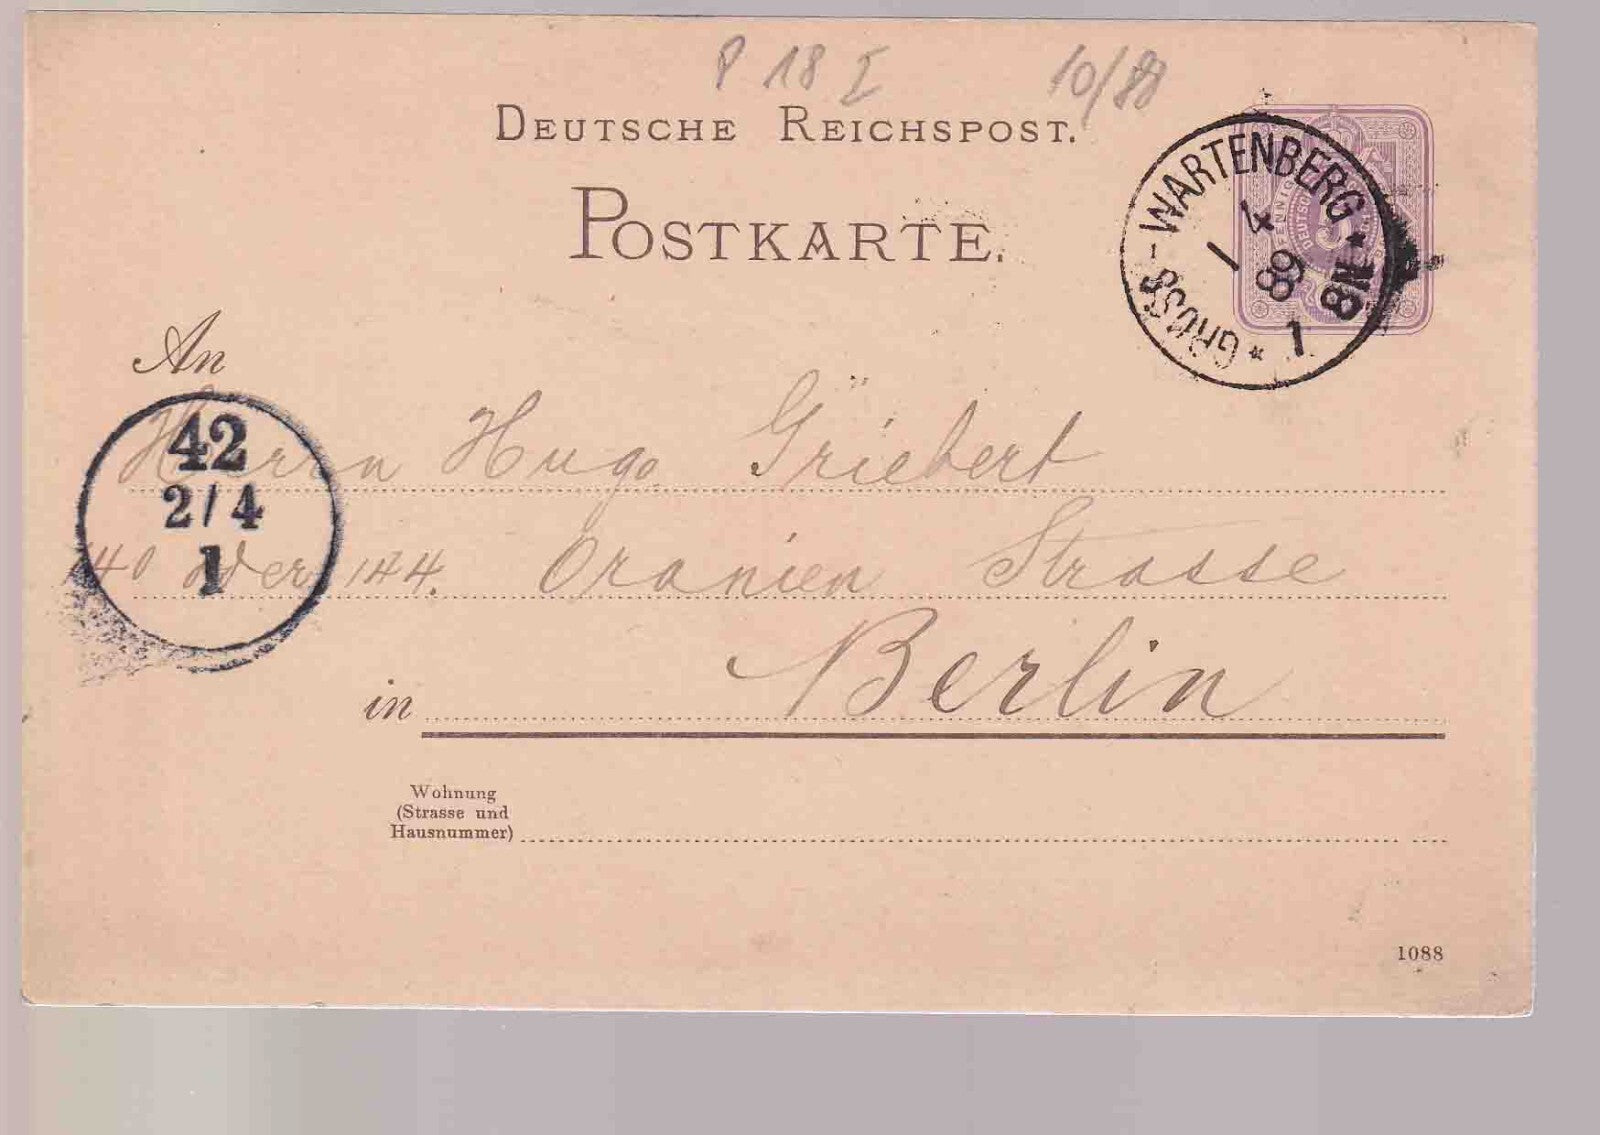 P 18 I 10/88
DEUTSCHE REICHSPOST.
POSTKARTE.
GROSS-WARTENBERG
1
4
89
8N
* 1
An
Herrn Hugo Griebert
140 oder 144. Oranien Strasse
in Berlin
42
2/4
1
Wohnung
(Strasse und
Hausnummer)
1088